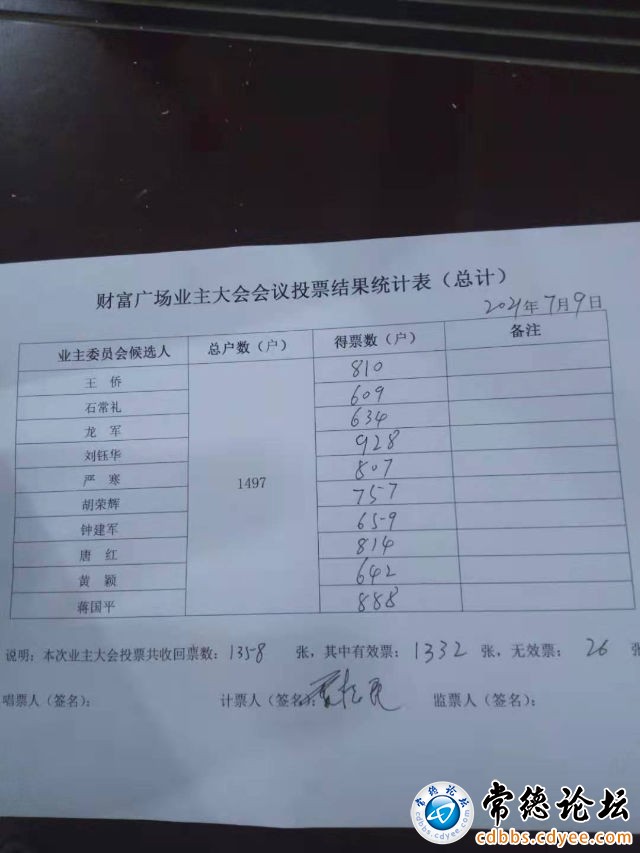 财富广场业主大会会议投票结果统计表（总计）
2021年7月9日
业主委员会候选人 总户数（户） 得票数（户） 备注
王 侨 810
石常礼 609
龙 军 634
刘钰华 928
严 寒 807
胡荣辉 1497 757
钟建军 659
唐 红 814
黄 颖 642
蒋国平 888
说明：本次业主大会投票共收回票数：1358 张，其中有效票：1332 张，无效票： 26 张
唱票人（签名）： 计票人（签名）： 监票人（签名）：
常德论坛
cdbbs.cdyee.com